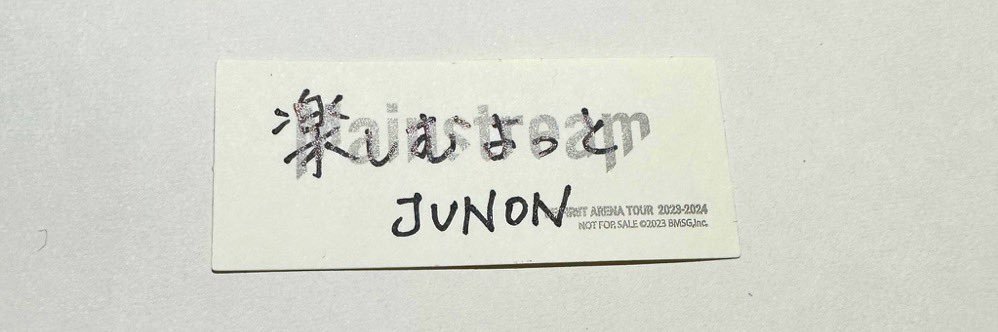 Mainstream
楽しむよっと
JUNON
BE:FIRST ARENA TOUR 2023-2024
NOT FOR SALE ©2023 BMSG,Inc.